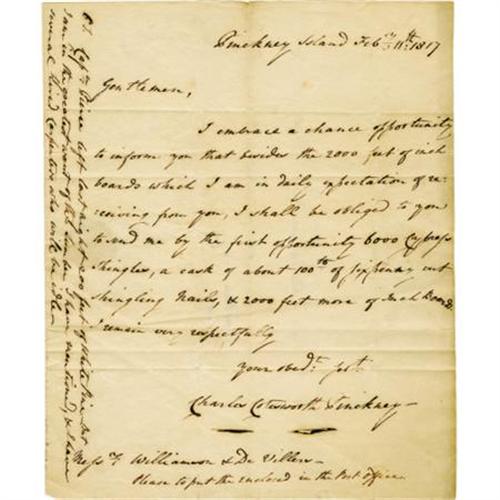 Pinckney Island Feby 11th 1817
Gentlemen,
I embrace a chance opportunity
to inform you that besides the 2000 feet of inch
boards which I am in daily expectation of re-
ceiving from you, I shall be obliged to you
to send me by the first opportunity 6000 Cypress
Shingles, a cask of about 100lb of sixpenny cut
Shingling Nails, & 2000 feet more of Inch Boards.
I remain very respectfully
your obedt. servt.
Charles Cotesworth Pinckney
Messrs. Williamson & De Villers
Please to put the enclosed in the Post Office
left last night 200 feet of White Pine
I am in the greatest want of the Lumber I have mentioned, & have
several hired Carpenters who will be idle